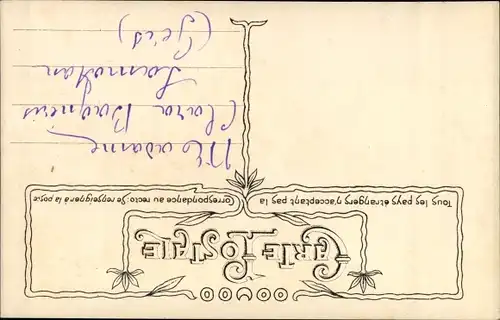 CARTE POSTALE
Tous les pays étrangers n'acceptant pas la
Correspondance au recto: Se renseigner à la poste
Madame
Clara Bagnéris
Lamothan
(Gers)